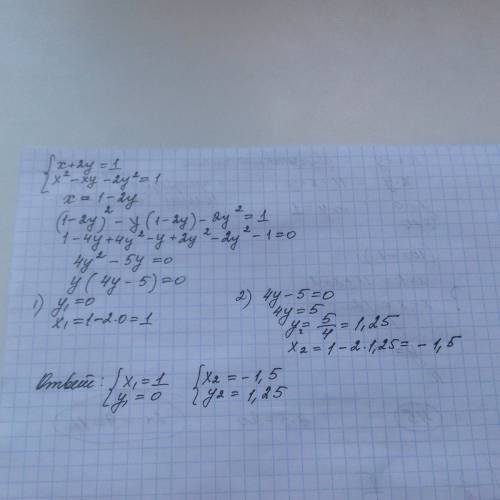 {x+2y=1
x²-xy-2y²=1
x=1-2y
(1-2y)²-y(1-2y)-2y²=1
1-4y+4y²-y+2y²-2y²-1=0
4y²-5y=0
y(4y-5)=0
1) y₁=0
x₁=1-2·0=1
2) 4y-5=0
4y=5
y₂=5/4=1,25
x₂=1-2·1,25=-1,5
Ответ: {x₁=1 {x₂=-1,5
y₁=0 y₂=1,25